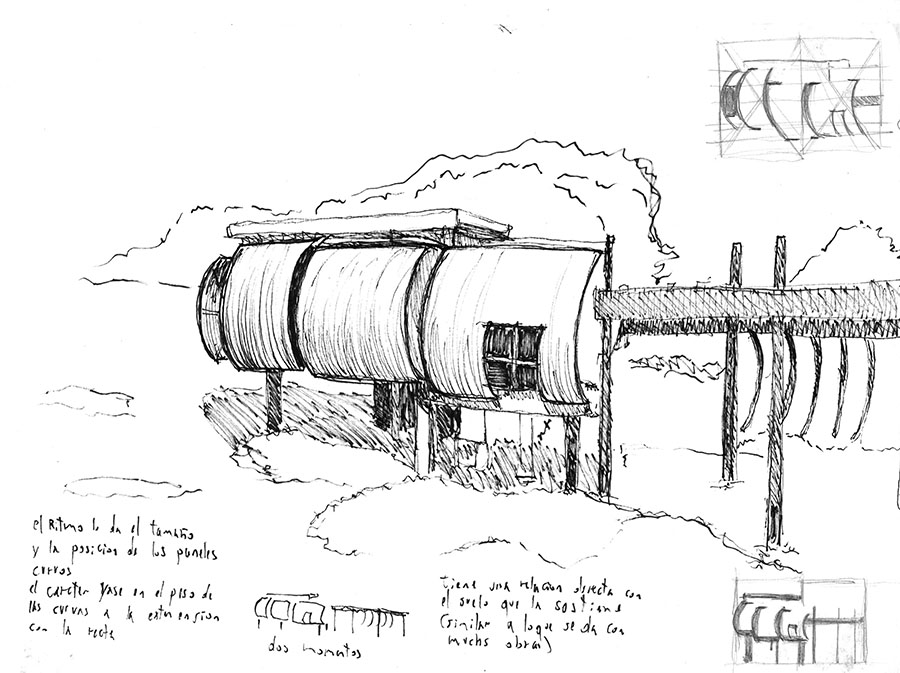 el Ritmo lo da el tamaño
y la posicion de los paneles
curvos
el carcter yase en el paso de
las curvas a la extension
con la recta
dos momentos
tiene una relacion directa con
el suelo que la sostiene
(similar a loque se da con
muchs obras)